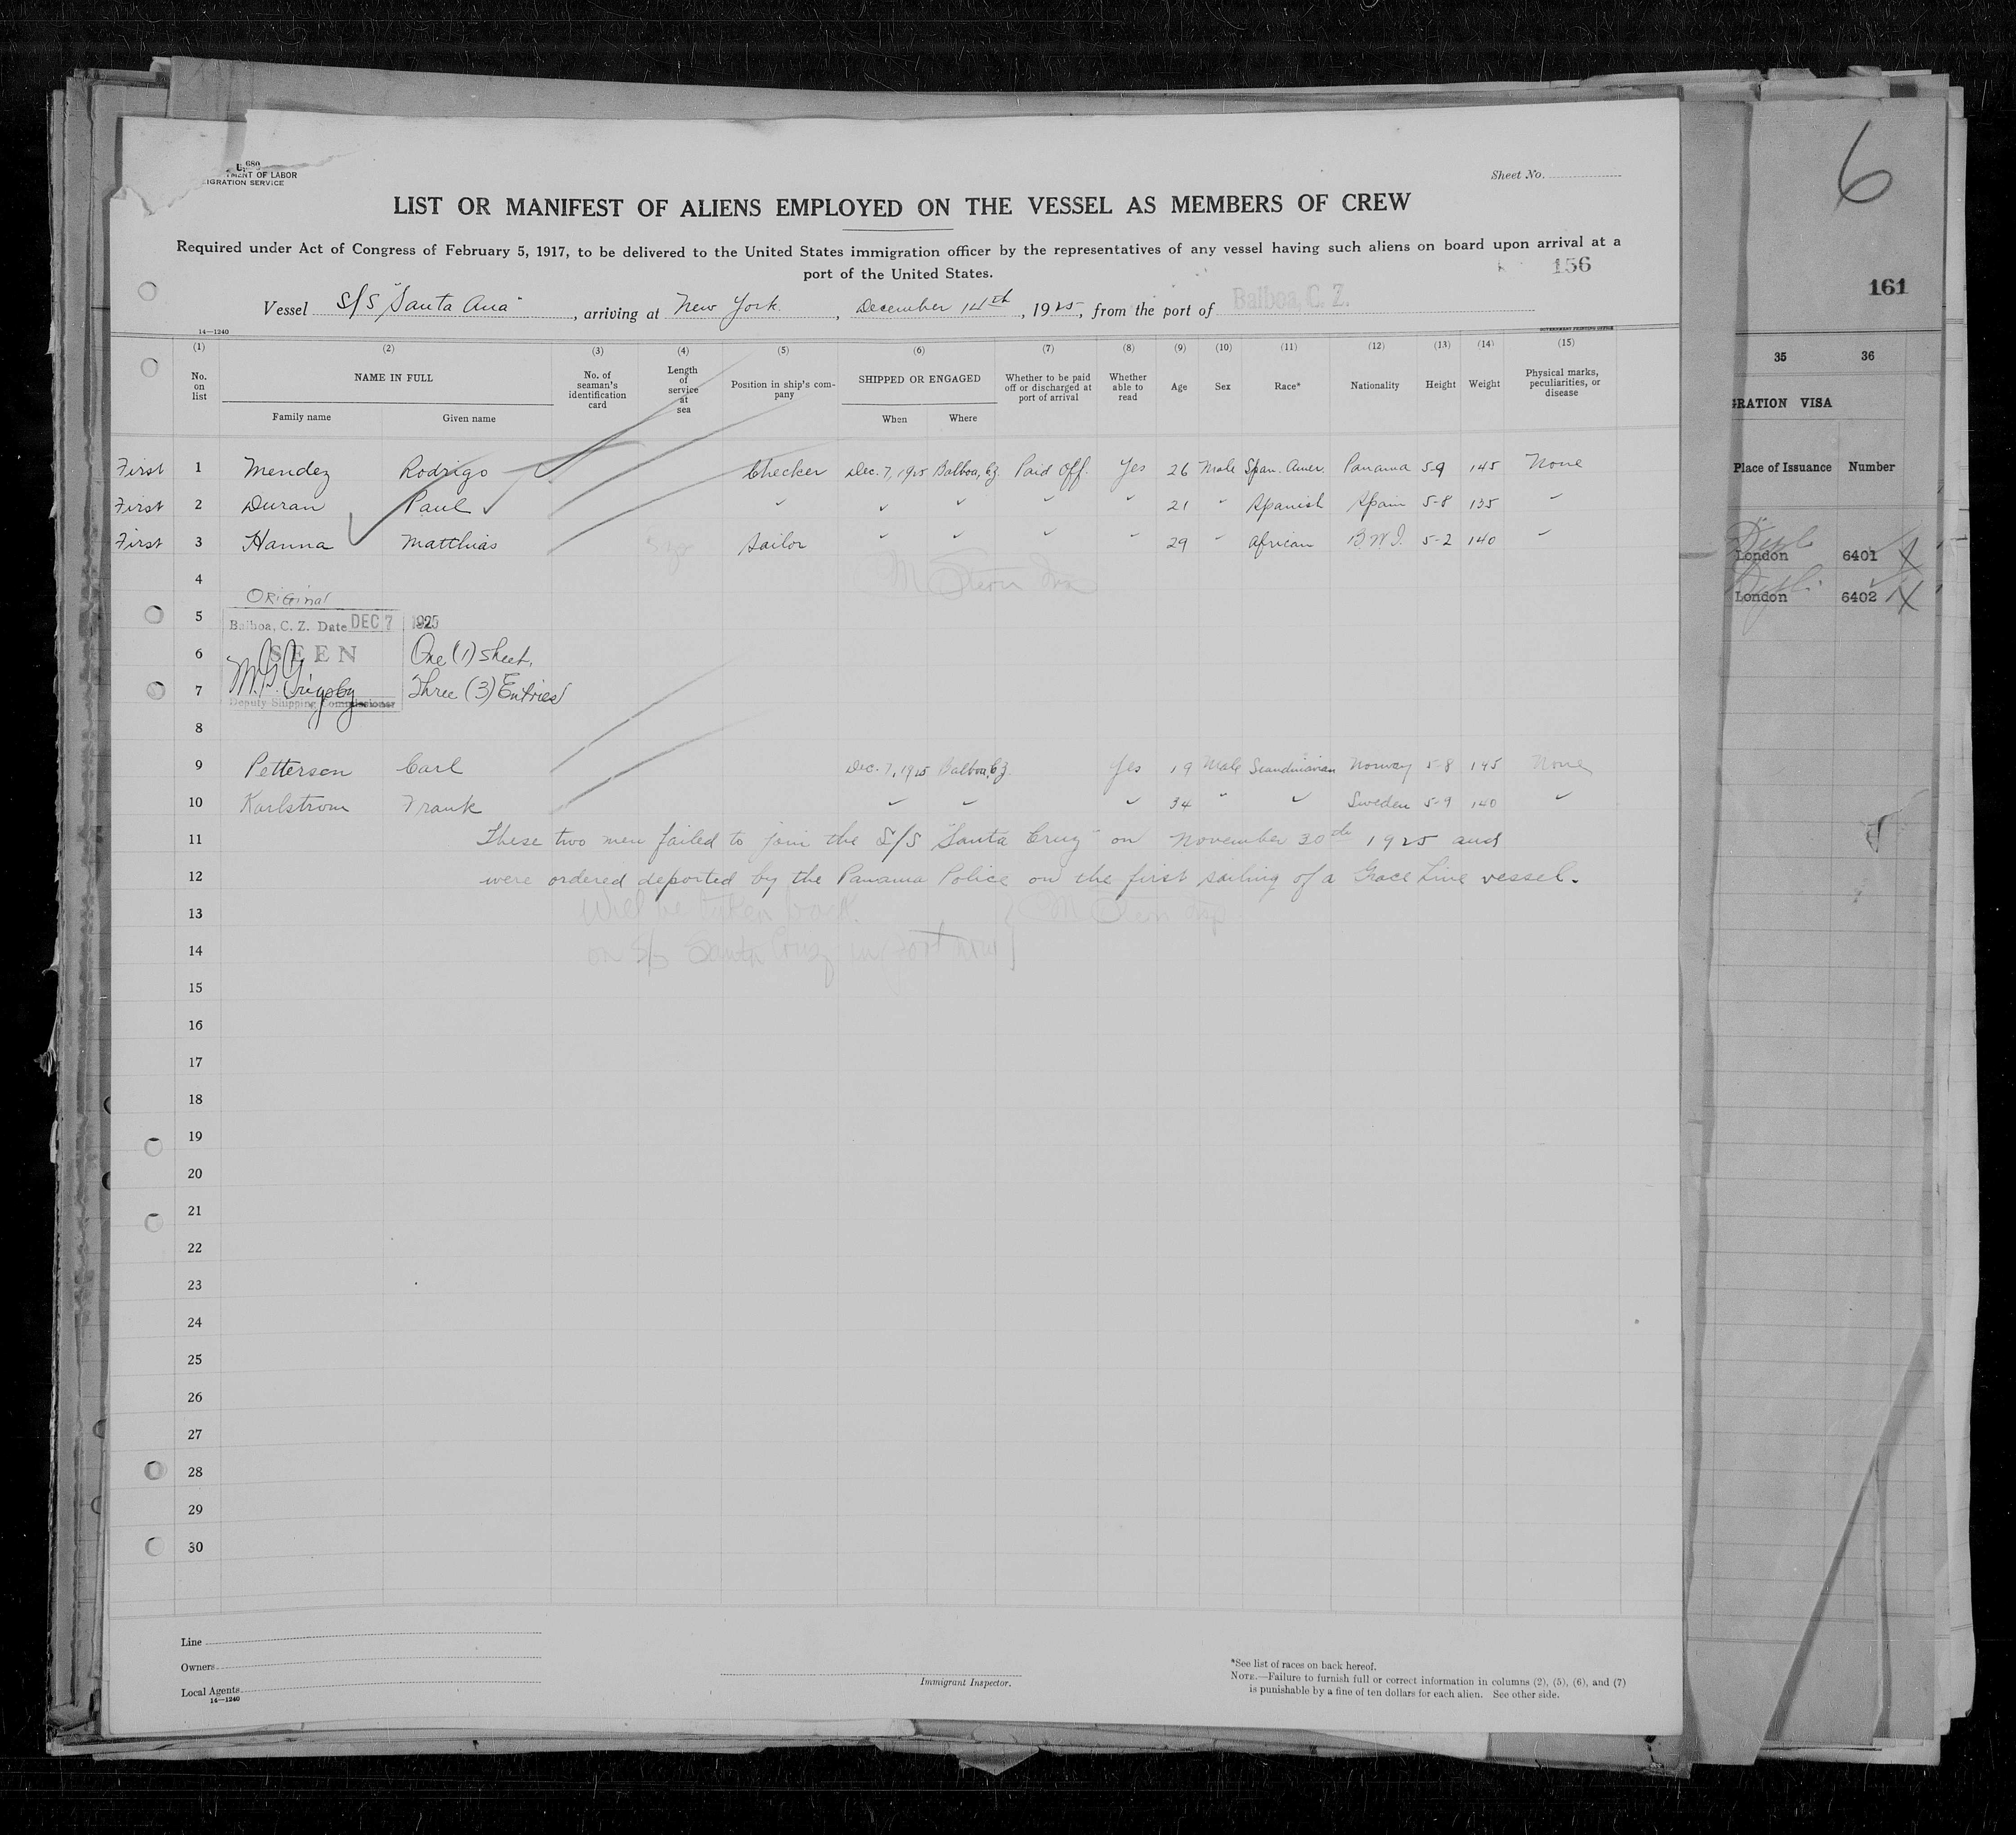 680
MENT OF LABOR
IGRATION SERVICE
Sheet No.
6
LIST OR MANIFEST OF ALIENS EMPLOYED ON THE VESSEL AS MEMBERS OF CREW
Required under Act of Congress of February 5, 1917, to be delivered to the United States immigration officer by the representatives of any vessel having such aliens on board upon arrival at a
port of the United States.
156
161
Vessel S/S "Santa Ana", arriving at New York, December 14th, 1925, from the port of Balboa, C. Z.
14—1240
GOVERNMENT PRINTING OFFICE
(1) (2) (3) (4) (5) (6) (7) (8) (9) (10) (11) (12) (13) (14) (15)
No. on list
NAME IN FULL
Family name
Given name
No. of seaman's identification card
Length of service at sea
Position in ship's company
SHIPPED OR ENGAGED
When
Where
Whether to be paid off or discharged at port of arrival
Whether able to read
Age
Sex
Race*
Nationality
Height
Weight
Physical marks, peculiarities, or disease
35 36
GRATION VISA
Place of Issuance Number
First 1 Mendez Rodrigo Checker Dec. 7, 1925 Balboa, Cz. Paid Off. Yes 26 Male Span. Amer. Panama 5-9 145 None
First 2 Duran Paul " " " " " 21 " Spanish Spain 5-8 135 "
First 3 Hanna Matthias Sailor " " " " 29 " African B.W.I. 5-2 140 "
London 6401
London 6402
4
Original
5 Balboa, C. Z. Date DEC 7 1925
6 SEEN One (1) Sheet,
7 M.B. Grigsby Three (3) Entries
Deputy Shipping Commissioner
8
9 Petterson Carl Dec. 7, 1925 Balboa, Cz. Yes 19 Male Scandinavian Norway 5-8 145 None
10 Karlstrom Frank " " " 34 " " Sweden 5-9 140 "
11 These two men failed to join the S/S "Santa Cruz" on November 30th 1925 and
12 were ordered deported by the Panama Police on the first sailing of a Grace Line vessel.
13 Will be taken back
14 on S/S Santa Cruz in port now
15
16
17
18
19
20
21
22
23
24
25
26
27
28
29
30
Line
Owners
Local Agents
14—1240
Immigrant Inspector.
*See list of races on back hereof.
NOTE.—Failure to furnish full or correct information in columns (2), (5), (6), and (7)
is punishable by a fine of ten dollars for each alien. See other side.